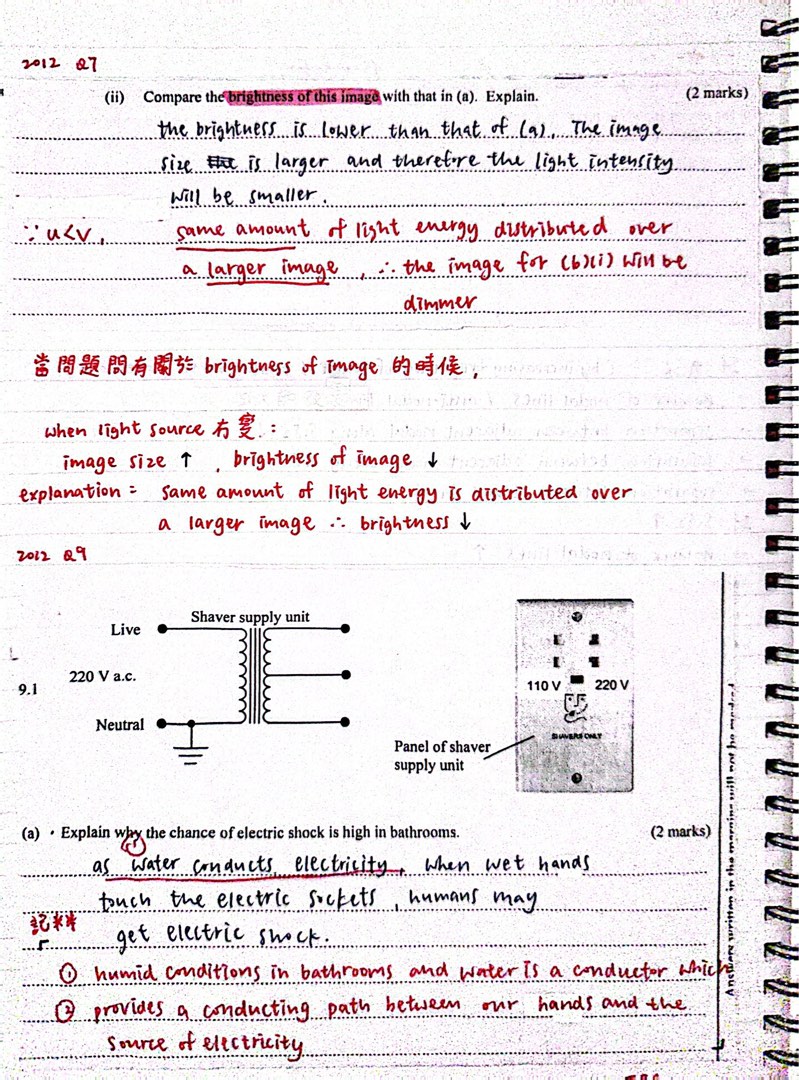 2012 Q7
(ii) Compare the brightness of this image with that in (a). Explain. (2 marks)
the brightness is lower than that of (a). The image
size is larger and therefore the light intensity
will be smaller.
∵ u<v, same amount of light energy distributed over
a larger image, ∴ the image for (b)(i) will be
dimmer
當問題問有關於 brightness of image 的時候,
when light source 冇變:
image size ↑, brightness of image ↓
explanation: same amount of light energy is distributed over
a larger image ∴ brightness ↓
2012 Q9
Shaver supply unit
Live
220 V a.c.
9.1
Neutral
110 V 220 V
SHAVERS ONLY
Panel of shaver
supply unit
Answers written in the margins will not be marked.
(a) Explain why the chance of electric shock is high in bathrooms. (2 marks)
①
as water conducts electricity, when wet hands
touch the electric sockets, humans may
get electric shock.
① humid conditions in bathrooms and water is a conductor which
② provides a conducting path between our hands and the
source of electricity